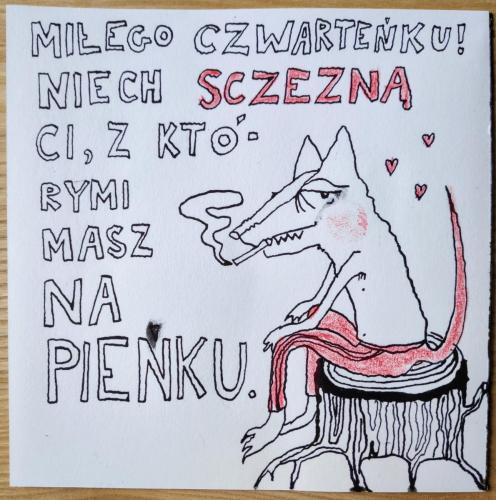 MIŁEGO CZWARTEŃKU!
NIECH SCZEZNĄ
CI, Z KTÓ-
RYMI
MASZ
NA
PIEŃKU.